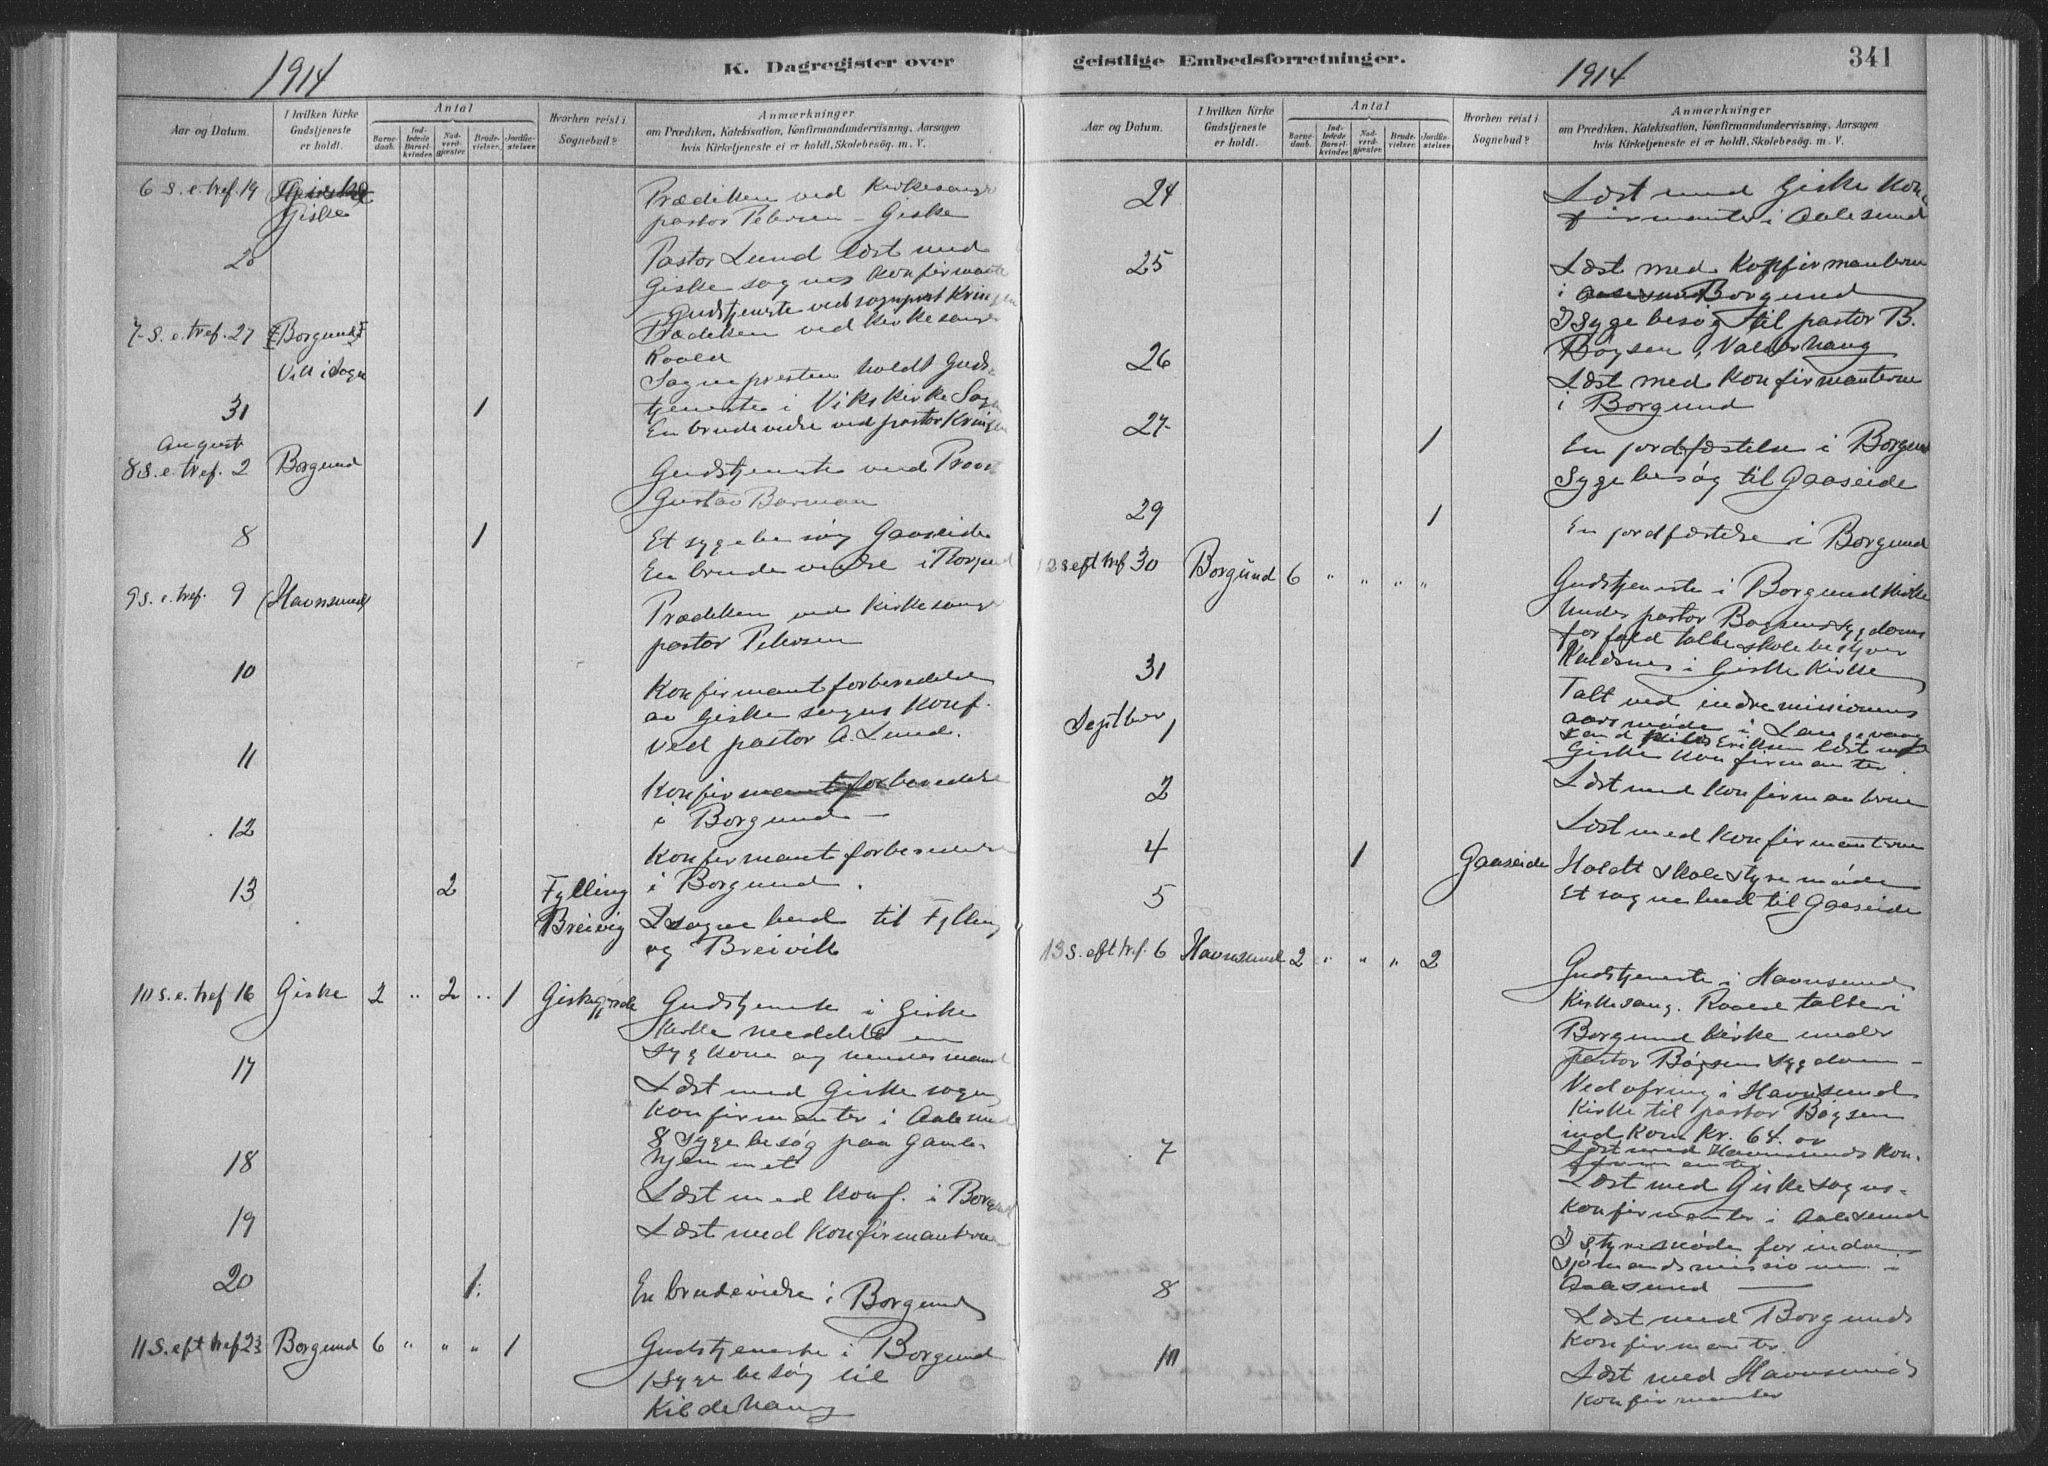 1914
K. Dagregister over
Aar og Datum.
I hvilken Kirke Gudstjeneste er holdt.
Antal
Barnedaab.
Indledede Barselkvinder.
Nadverdgjæster.
Brudevielser.
Jordfæstelser.
Hvorhen reist i Sognebud?
Anmærkninger
om Prædiken, Katekisation, Konfirmandundervisning, Aarsagen
hvis Kirketjeneste ei er holdt, Skolebesøg. m. V.
6 S. e. tref. 19 Giske
Prædiken ved Kirkesanger
pastor Petersen - Giske
20
Pastor Lund læst med
Giske sogns Konfirmanter
Gudstjeneste ved sognprest
7- S. e. tref. 27 Borgund
Prædiken ved Kirkesanger
Roald
Vik i Sogn
Sognepresten holdt Guds
tjeneste i Viks Kirke Sogn
31 1
En brudevielse ved pastor
August
8 S. e. tref. 2 Borgund
Gudstjeneste ved Provst
Gustav Barman
8 1
Et sygebesøg Gaaseide
En brudevielse i Borgund
9 S. e. tref. 9 (Havnsund)
Prædiken ved Kirkesanger
pastor Petersen
10
Konfirmantforberedelse
av Giske sogns Konf.
ved pastor A. Lund.
11
Konfirmantforberedelse
i Borgund -
12
Konfirmantforberedelse
i Borgund.
13 2 Fylling
Breivig
I sognebud til Fylling
og Breivik
10 S. e. tref 16 Giske 2 " 2 " 1 Giskegjerde
Gudstjeneste i Giske
Kirke meddelt en
syg kone og hendes mand
17
Læst med Giske sogns
Konfirmanter i Aalesund
& Sygebesøg paa Gamle-
hjemmet
18
Læst med Konf. i Borgund
19
Læst med Konfirmanterne
20 1
En brudevielse i Borgund
11 S. eft tref 23 Borgund 6 " " " 1
Gudstjeneste i Borgund
Sygebesøg til
Kildehaug
geistlige Embedsforretninger.
1914
341
Aar og Datum.
I hvilken Kirke Gudstjeneste er holdt.
Antal
Barnedaab.
Indledede Barselkvinder.
Nadverdgjæster.
Brudevielser.
Jordfæstelser.
Hvorhen reist i Sognebud?
Anmærkninger
om Prædiken, Katekisation, Konfirmandundervisning, Aarsagen
hvis Kirketjeneste ei er holdt, Skolebesøg. m. V.
24
Læst med Giske Kon-
firmanter i Aalesund
25
Læst med Konfirmanterne
i Borgund
I Sygebesøg til pastor B.
Bøgsen, Valderhaug
26
Læst med Konfirmanterne
i Borgund
27 1
En jordfæstelse i Borgund
Sygebesøg til Gaaseide
29 1
En jordfæstelse i Borgund
12 S eft tref 30 Borgund 6 " " " "
Gudstjeneste i Borgund Kirke
Under pastor Bøgsens sygdoms
forfald talte skolebestyrer
Kaldsnes i Giske Kirke
31
Talt ved indremissionens
aarsmøde i Langevaag
Septber 1
Eriksen læst med
Giske Konfirmanter
2
Læst med Konfirmanterne
4 1 Gaaseide
Læst med Konfirmanterne
Holdt skolestyremøde
5
Et sognebud til Gaaseide
13 S. eft tref. 6 Havnsund 2 " " " 2
Gudstjeneste i Havnsund
Kirkesang. Roald talte i
Borgund Kirke under
Pastor Bøgsens sygdom -
Ved ofring i Havnsund
Kirke til pastor Bøgsen
ind kom Kr. 64.
7
Læst med Havnsunds Kon-
firmanter
Læst med Giske sogns-
Konfirmanter i Aalesund
I styresmøde for indre
sjømandsmissionen i
Aalesund
8
Læst med Borgunds
Konfirmanter.
10
Læst med Havnsunds
Konfirmanter